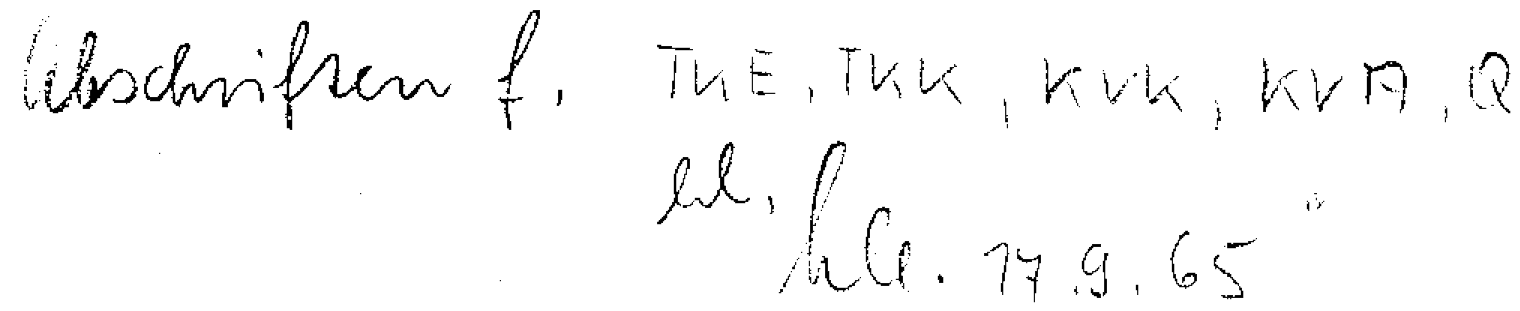 Abschriften f. TKE, TKK, KVK, KVA, Q
erl.
17.9.65